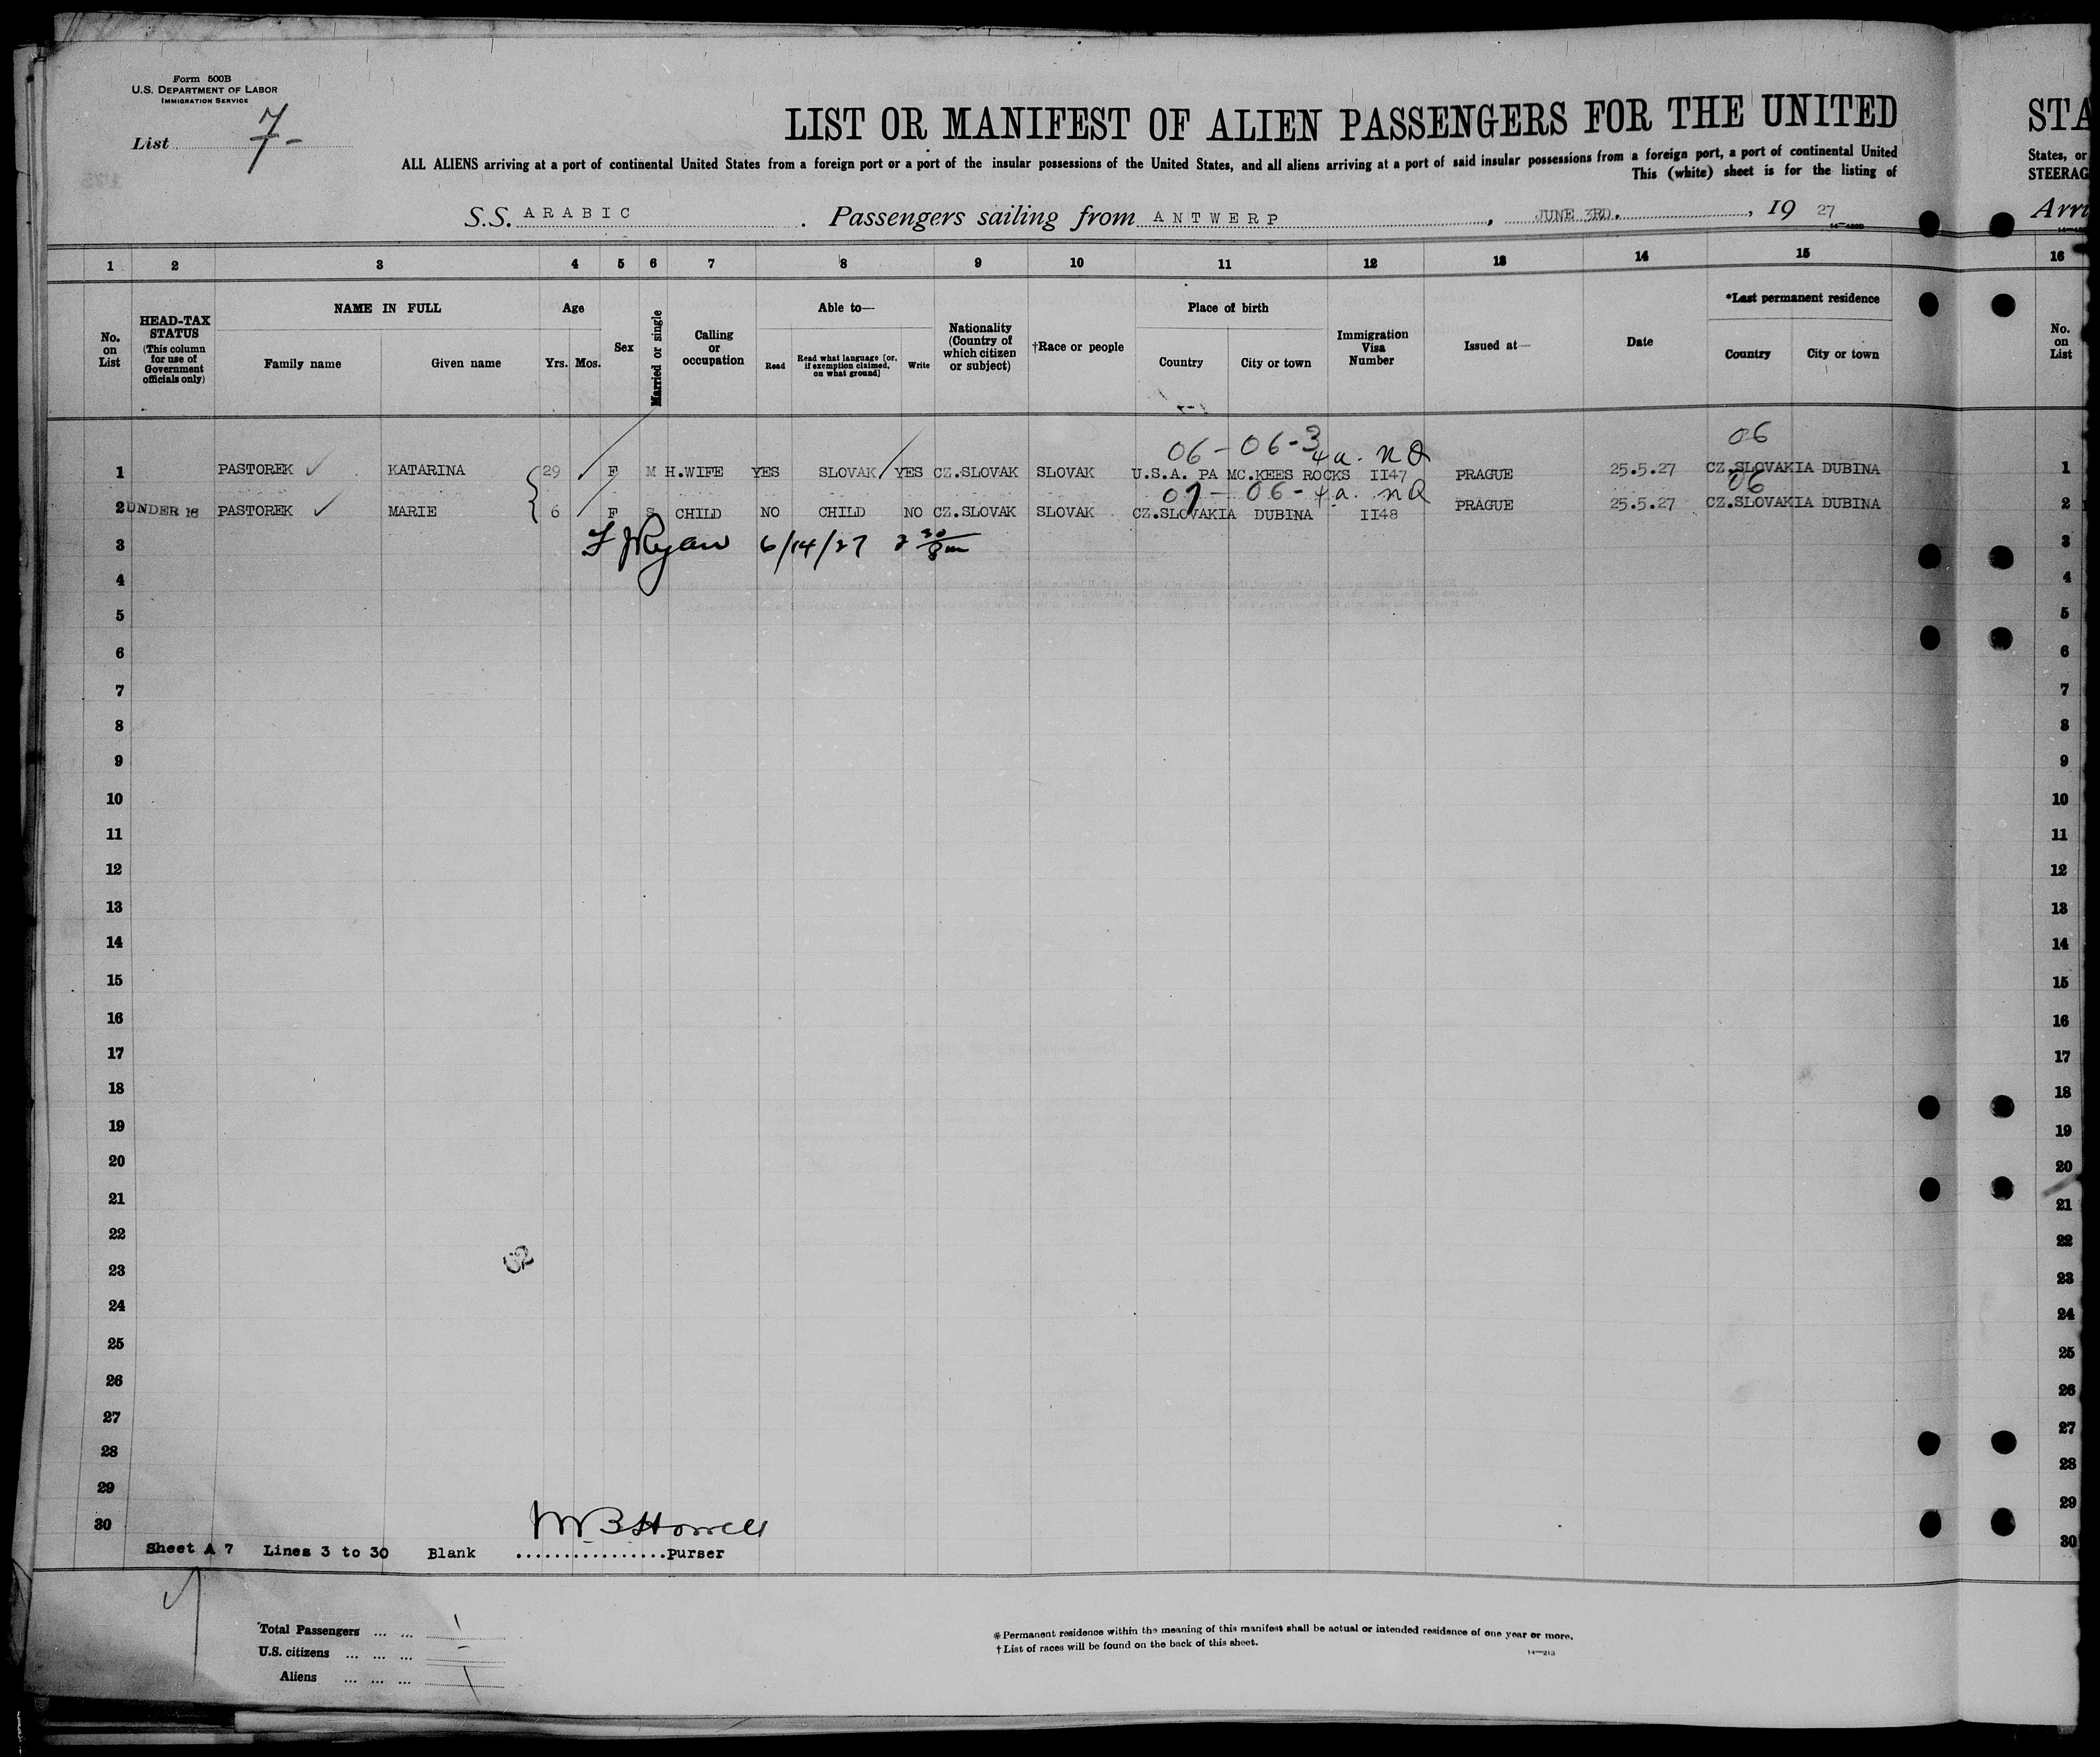 Form 500B
U.S. DEPARTMENT OF LABOR
IMMIGRATION SERVICE
List 7-
LIST OR MANIFEST OF ALIEN PASSENGERS FOR THE UNITED
STA
ALL ALIENS arriving at a port of continental United States from a foreign port or a port of the insular possessions of the United States, and all aliens arriving at a port of said insular possessions from a foreign port, a port of continental United
States, or
This (white) sheet is for the listing of
STEERAG
S.S. ARABIC . Passengers sailing from ANTWERP , JUNE 3RD. , 19 27
Arri
1 2 3 4 5 6 7 8 9 10 11 12 13 14 15 16
No. on List
HEAD-TAX STATUS (This column for use of Government officials only)
NAME IN FULL
Family name Given name
Age
Yrs. Mos.
Sex
Married or single
Calling or occupation
Able to—
Read Read what language (or, if exemption claimed, on what ground) Write
Nationality (Country of which citizen or subject)
†Race or people
Place of birth
Country City or town
Immigration Visa Number
Issued at—
Date
*Last permanent residence
Country City or town
No. on List
06 - 06-3 4a. 06
1 PASTOREK ✓ KATARINA 29 F M H.WIFE YES SLOVAK YES CZ.SLOVAK SLOVAK U.S.A. PA MC.KEES ROCKS II47 PRAGUE 25.5.27 CZ.SLOVAKIA DUBINA 1
07 - 06 - 4a. 06
2 UNDER 16 PASTOREK ✓ MARIE 6 F S CHILD NO CHILD NO CZ.SLOVAK SLOVAK CZ.SLOVAKIA DUBINA II48 PRAGUE 25.5.27 CZ.SLOVAKIA DUBINA 2
3 F J Ryan 6/14/27 2 30 3
4 4
5 5
6 6
7 7
8 8
9 9
10 10
11 11
12 12
13 13
14 14
15 15
16 16
17 17
18 18
19 19
20 20
21 21
22 22
23 23
24 24
25 25
26 26
27 27
28 28
29 29
30 30
Sheet A 7 Lines 3 to 30 Blank ................purser
Total Passengers ... ...
U.S. citizens ... ... ...
Aliens ... ... ...
*Permanent residence within the meaning of this manifest shall be actual or intended residence of one year or more.
†List of races will be found on the back of this sheet.
14—213